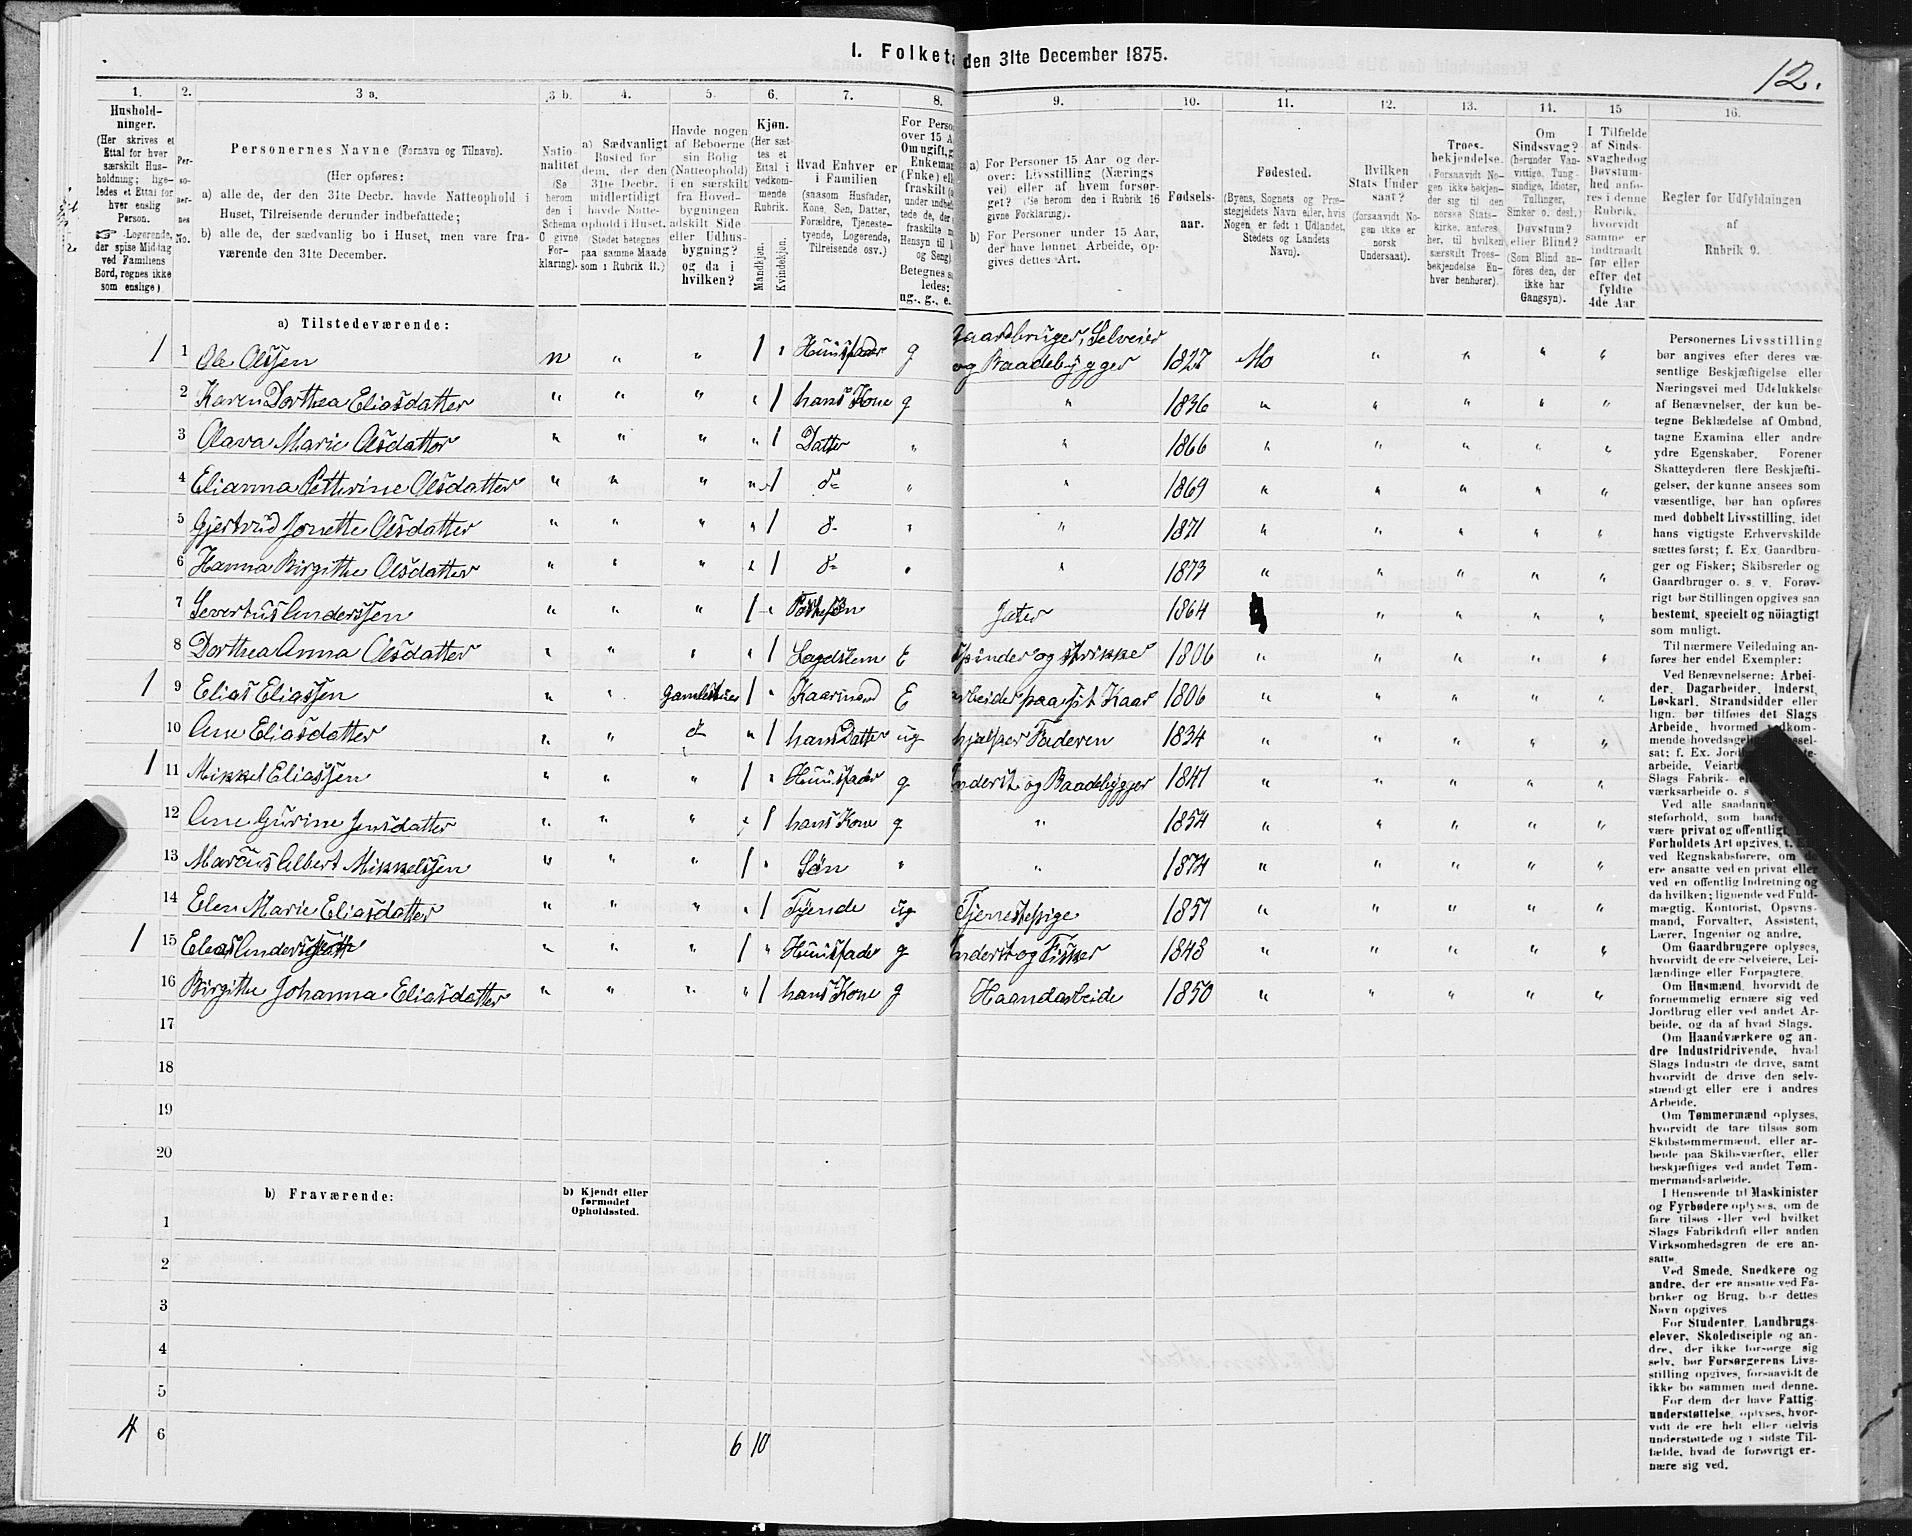 I. Folketæ den 31te December 1875.
12.
1. 2. 3 a. 3 b. 4. 5. 6. 7. 8. 9. 10. 11. 12. 13. 14. 15 16.
Hushold-
ninger.
(Her skrives et
Ettal for hver
særskilt Hus-
holdning; lige-
ledes et Ettal for
hver enslig
Person.
☞ Logerende,
der spise Middag
ved Familiens
Bord, regnes ikke
som enslige).
Per-
so-
ner-
nes
No.
Personernes Navne (Fornavn og Tilnavn).
(Her opføres:
a) alle de, der den 31te Decbr. havde Natteophold i
Huset, Tilreisende derunder indbefattede;
b) alle de, der sædvanlig bo i Huset, men vare fra-
værende den 31te December.
Natio-
nalitet
(Se
herom
den i
Schema
C givne
For-
klaring).
a) Sædvanligt
Bosted for
dem, der den
31te Decbr.
midlertidigt
havde Natte-
ophold i Huset.
(Stedet betegnes
paa samme Maade
som i Rubrik 11.)
Havde nogen
af Beboerne
sin Bolig
(Natteophold)
i en særskilt
fra Hoved-
bygningen
adskilt Side-
eller Udhus-
bygning?
og da i
hvilken?
Kjøn.
(Her sæt-
tes et
Ettal i
vedkom-
mende
Rubrik.
Mandkjøn.
Kvindekjøn.
Hvad Enhver er
i Familien
(saasom Husfader,
Kone, Søn, Datter,
Forældre, Tjeneste-
tyende, Logerende,
Tilreisende osv.)
For Perso
over 15 A
Om ugift, g
Enkeman
(Enke) ell
fraskilt (
under indbefa
tede de, der
fraskilte
Hensyn til
og Seng)
Betegnes s
ledes:
ug., g., e.
a) For Personer 15 Aar og der-
over: Livsstilling (Nærings-
vei) eller af hvem forsør-
get? (Se herom den i Rubrik 16
givne Forklaring).
b) For Personer under 15 Aar,
der have lønnet Arbeide, op-
gives dettes Art.
Fødsels-
aar.
Fødested.
(Byens, Sognets og Præ-
stegjeldets Navn eller, hvis
Nogen er født i Udlandet,
Stedets og Landets
Navn).
Hvilken
Stats Under
saat?
(forsaavidt No-
gen ikke er
norsk
Undersaat).
Troes-
bekjendelse.
(Forsaavidt No-
gen ikke bekjen-
der sig til den
norske Stats-
kirke, anføres
her, til hvilken
særskilt Troes-
bekjendelse En-
hver henhører).
Om
Sindssvag?
(herunder Van-
vittige, Tung-
sindige, Idioter,
Tullinger,
Sinker o. desl.)
Døvstum?
eller Blind?
(Som Blind an-
føres den, der
ikke har
Gangsyn).
I Tilfælde
af Sinds-
svaghed og
Døvstum-
hed anfø-
res i denne
Rubrik,
hvorvidt
samme er
indtraadt
før eller
efter det
fyldte
4de Aar
Regler for Udfyldningen
af
Rubrik 9.
a) Tilstedeværende:
1 1 Ole Olssen n " " 1 " Huusfader g Gaardbruger, Selveier og Baadebygger 1827 Mo " " " "
2 Karen Dorthea Eliasdatter " " " " 1 hans Kone g " 1836 " " " " "
3 Olava Marie Olsdatter " " " " 1 Datter " " 1866 " " " " "
4 Elianna Petterine Olsdatter " " " " 1 d- " " 1869 " " " " "
5 Gjertrud Jonette Olsdatter " " " " 1 d- " " 1871 " " " " "
6 Hanna Birgithe Olsdatter " " " " 1 d- " " 1873 " " " " "
7 Severtus Anderssen " " " 1 " Pleiesøn Jæter 1864 " " " "
8 Dorthea Anna Olsdatter " " " " 1 Lægdslem E Spinder og strikker 1806 " " " " "
1 9 Elias Eliassen " " Gamlestuen 1 " Kaarmand E arbeider paa sit Kaar 1806 " " " " "
10 Ane Eliasdatter " " d " 1 hans Datter ug hjælper Faderen 1834 " " " " "
1 11 Mikkel Eliassen " " " 1 " Huusfader g Inderst og Baadebygger 1841 " " " " "
12 Ane Gurine Jensdatter " " " " 1 hans Kone g " 1854 " " " " "
13 Marcus Albert Mikkelssen " " " 1 " Søn " " 1874 " " " " "
14 Elen Marie Eliasdatter " " " " 1 Tyende ug Tjenestepige 1857 " " " " "
1 15 Elias Anderssen " " " 1 " Huusfader g Inderst og Fisker 1848 " " " " "
16 Birgithe Johanna Eliasdatter " " " " 1 hans Kone g Haandarbeide 1850 " " " " "
17
18
19
20
b) Fraværende:
b) Kjendt eller
formodet
Opholdssted.
1
2
3
4
5
4 6 6 10
Personernes Livsstilling
bør angives efter deres væ-
sentlige Beskjæftigelse eller
Næringsvei med Udelukkelse
af Benævnelser, der kun be-
tegne Beklædelse af Ombud,
tagne Examina eller andre
ydre Egenskaber. Forener
Skatteyderen flere Beskjæfti-
gelser, der kunne ansees som
væsentlige, bør han opføres
med dobbelt Livsstilling, idet
hans vigtigste Erhvervskilde
sættes først; f. Ex. Gaardbru-
ger og Fisker; Skibsreder og
Gaardbruger o. s. v. Forøv-
rigt bør Stillingen opgives saa
bestemt, specielt og nöiagtigt
som muligt.
Til nærmere Veiledning an-
føres her endel Exempler:
Ved Benævnelserne: Arbei-
der, Dagarbeider, Inderst,
Løskarl, Strandsidder eller
lign. bør tilføies det Slags
Arbeide, hvormed vedkom-
mende hovedsagelig
sat; f. Ex. Jord
arbeide, Veiarb
Slags Fabrik-
værksarbeide o. s
Ved alle saadanne
steforhold, som baa
være privat og offentligt,
Forholdets Art opgives, t. Ex.
ved Regnskabsførere, om de
ere ansatte ved en privat eller
ved en offentlig Indretning og
da hvilken; lignende ved Fuld-
mægtig, Kontorist, Opsyns-
mand, Forvalter, Assistent,
Lærer, Ingeniør og andre.
Om Gaardbrugere oplyses,
hvorvidt de ere selveiere, Lei-
lændinge eller Forpagtere.
Om Husmænd, hvorvidt de
fornemmelig ernære sig ved
Jordbrug eller ved andet Ar-
beide, og da af hvad Slags.
Om Haandværkere og an-
dre Industridrivende, hvad
Slags Industri de drive, samt
hvorvidt de drive den selv-
stændigt eller ere i andres
Arbeide.
Om Tømmermænd oplyses,
hvorvidt de fare tilsøs som
Skibstømmermænd, eller ar-
beide paa Skibsværfter, eller
beskjæftiges ved andet Tøm-
mermandsarbeide.
I Henseende til Maskinister
og Fyrbødere oplyses, om de
fare tilsøs eller ved hvilket
Slags Fabrikdrift eller anden
Virksomhedsgren de ere an-
satte.
Ved Smede, Snedkere og
andre, der ere ansatte ved Fa-
briker og Brug, bør dettes
Navn opgives
For Studenter, Landbrugs-
elever, Skoledisciple og an-
dre, der ikke forsørge sig
selv, bør Forsørgerens Livs-
stilling opgives, forsaavidt de
ikke bo sammen med denne.
For dem, der have Fattig-
understøttelse, oplyses, hvor-
vidt de ere helt eller delvis
understøttede og i sidste Til-
fælde, hvad de forøvrigt er-
nære sig ved.